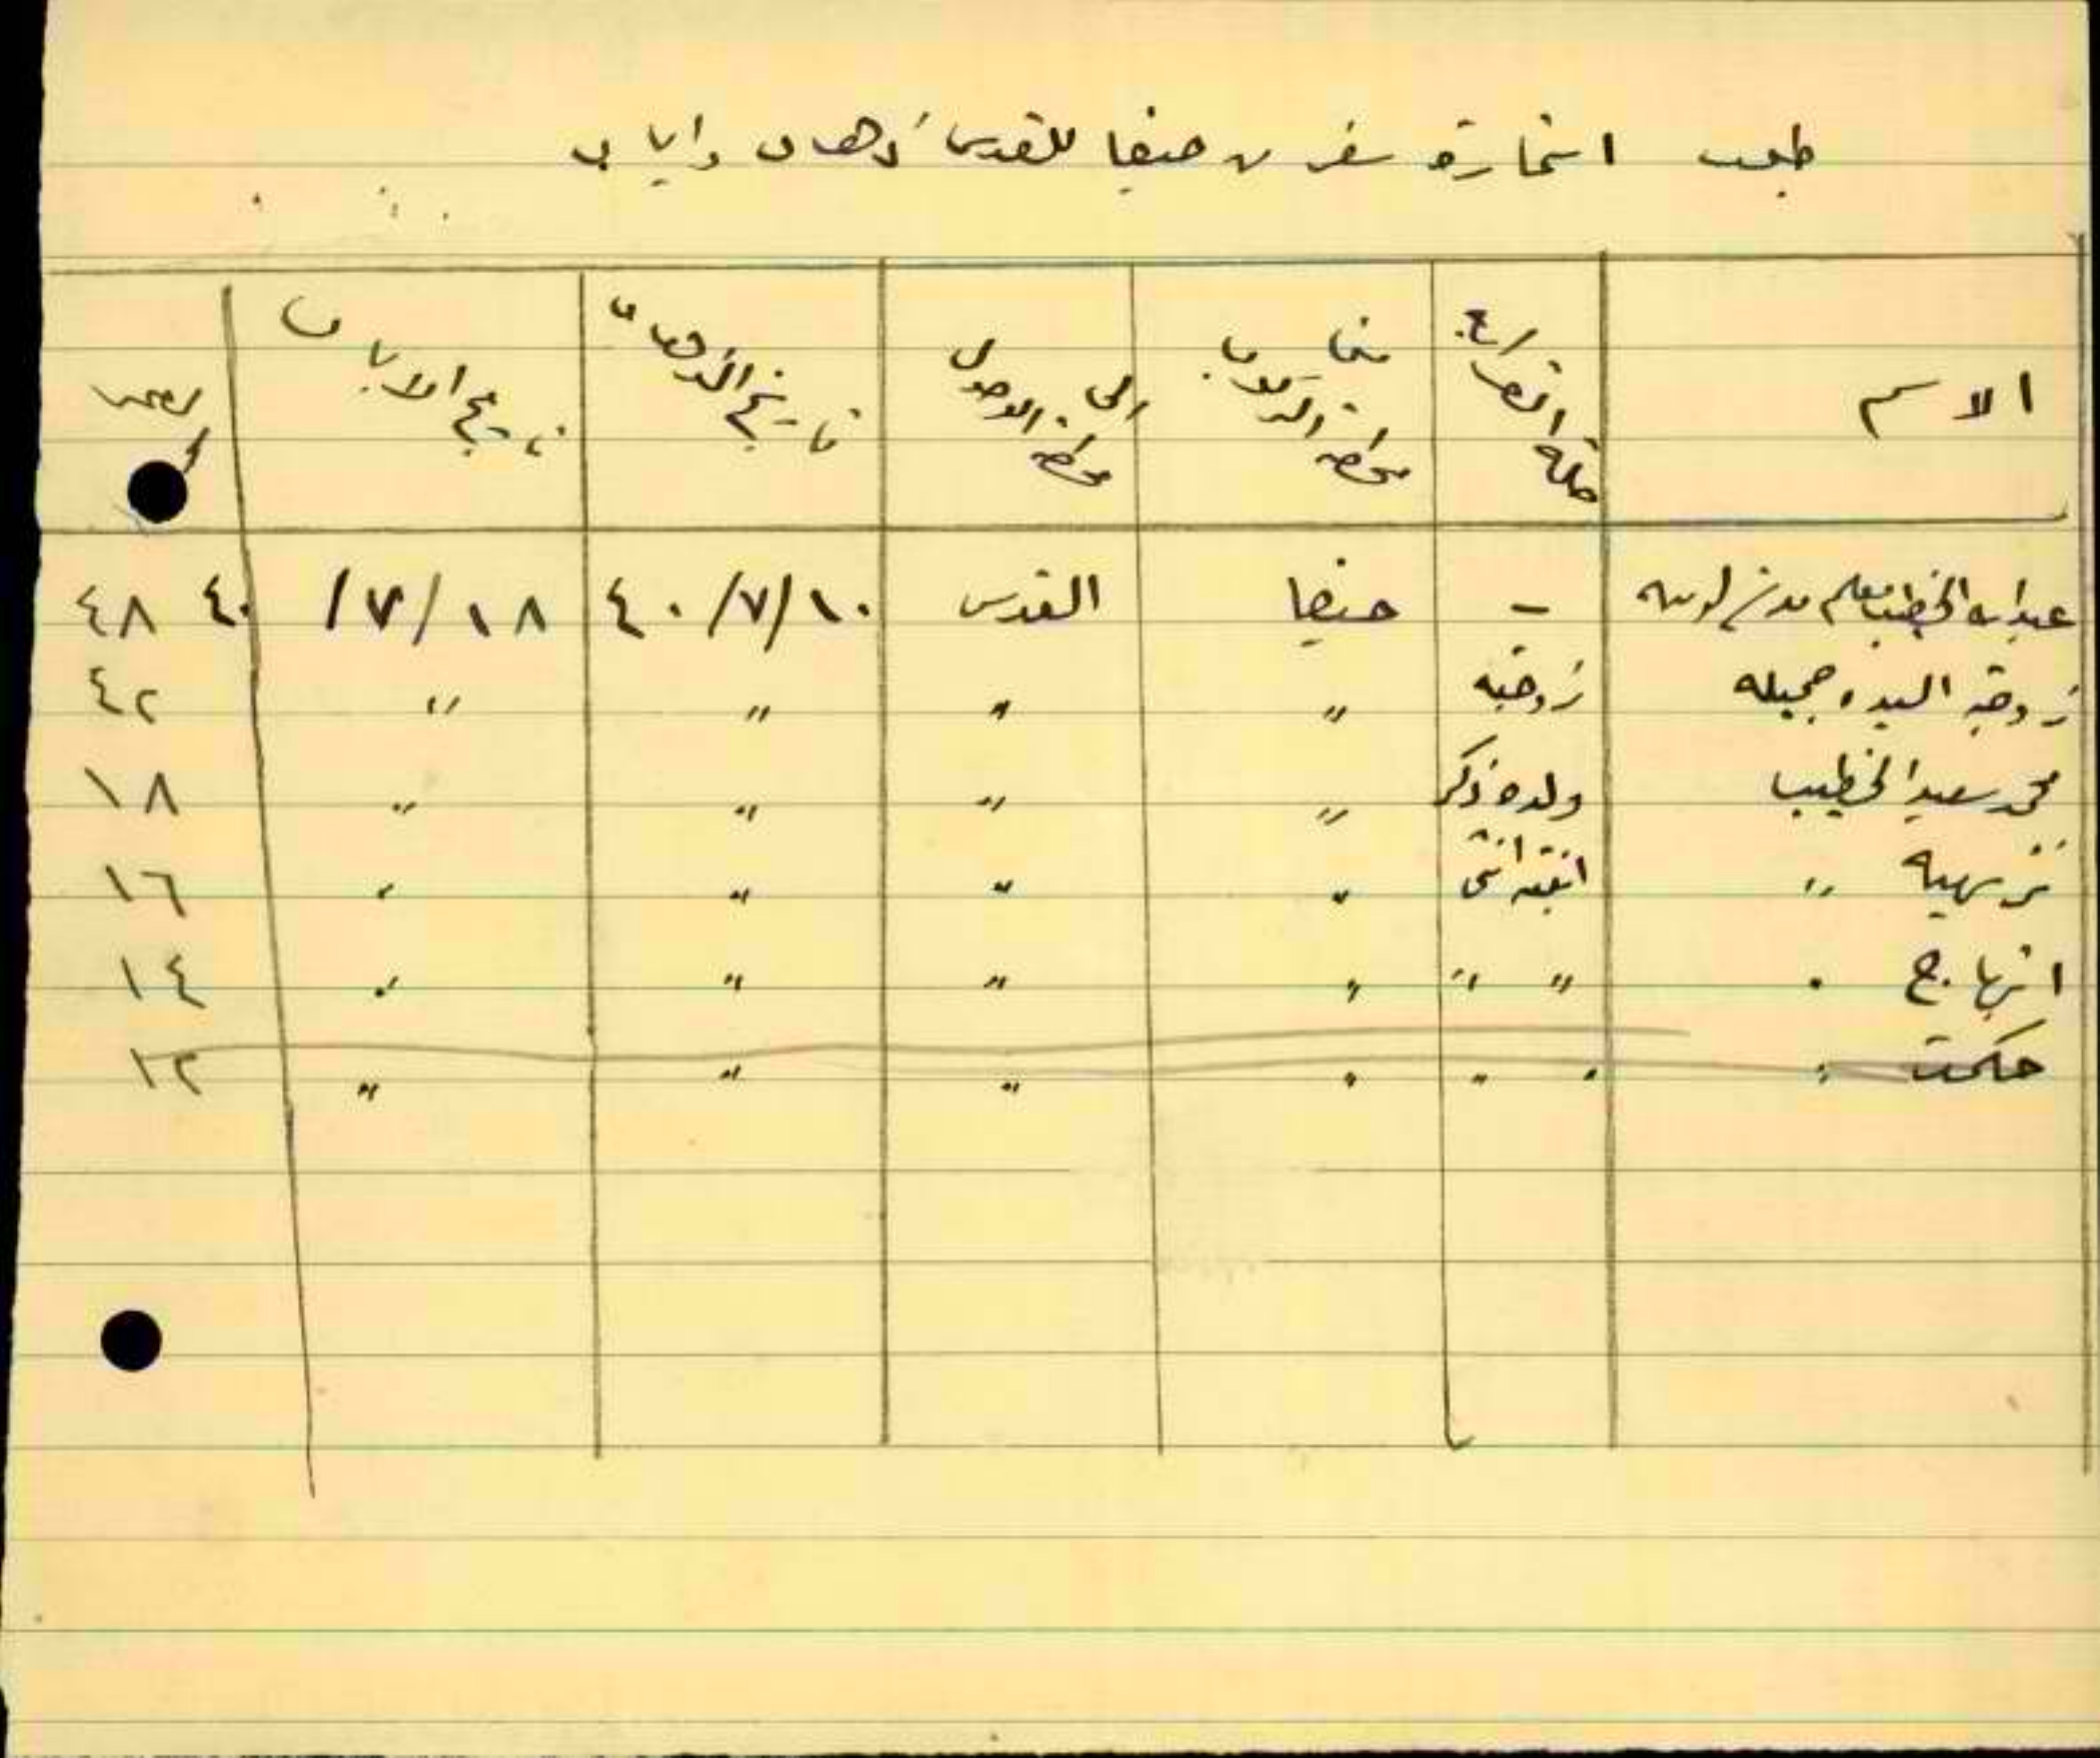 طلب استمارة سفر من حيفا للقدس ذهاب واياب
الاسم صلة القرابة من محطة الركوب الى محطة الوصول تاريخ الذهاب تاريخ الاياب العمر
عبدالله الخطيب معلم - حيفا القدس ١٠/٧/٤٠ ١٨/٧/٤٠ ٤٨
زوجته السيده جميله زوجته " " " " ٤٢
محمد سعيد الخطيب ولده ذكر " " " " ١٨
نزيهه " ابنته انثى " " " " ١٦
ابتهاج " " " " " " " ١٤
حكمت " " " " " " " ١٢